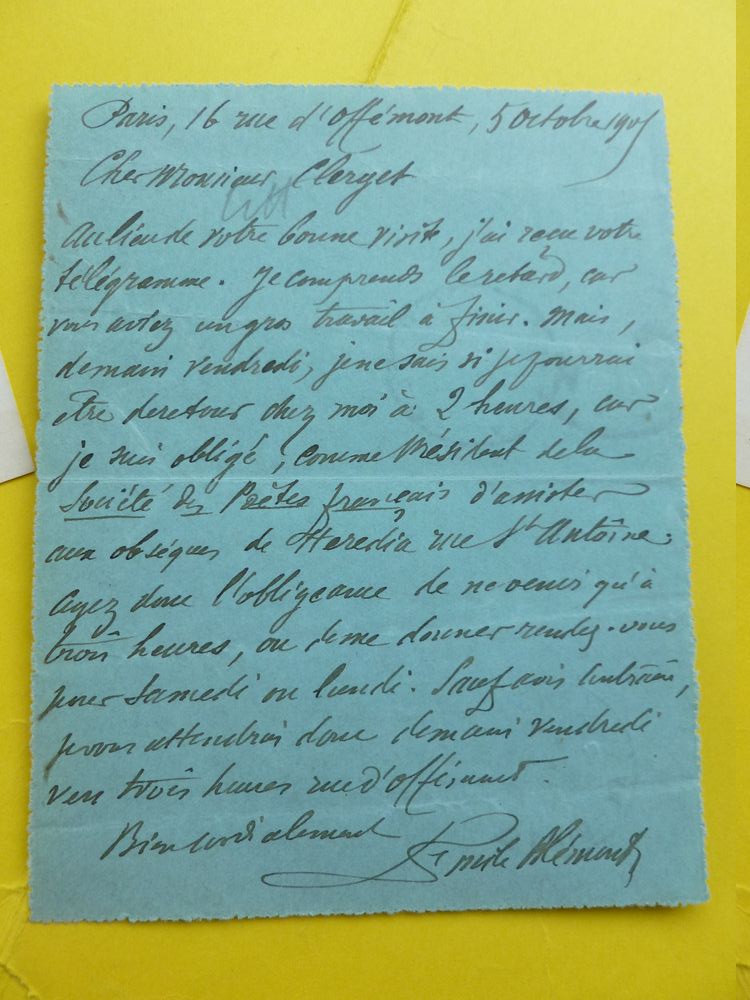 Paris, 16 rue d'Offémont, 5 Octobre 1905
Cher Monsieur Clerget
Au lieu de votre bonne visite, j'ai reçu votre
télégramme. Je comprends le retard, car
vous aviez un gros travail à finir. Mais,
demain vendredi, je ne sais si je pourrai
être de retour chez moi à 2 heures, car
je suis obligé, comme Président de la
Société des Poètes français d'assister
aux obsèques de Heredia rue St Antoine.
Ayez donc l'obligeance de ne venir qu'à
trois heures, ou de me donner rendez-vous
pour Samedi ou lundi. Sauf avis contraire,
je vous attendrai donc demain vendredi
vers trois heures rue d'Offémont.
Bien cordialement
Emile Blémont